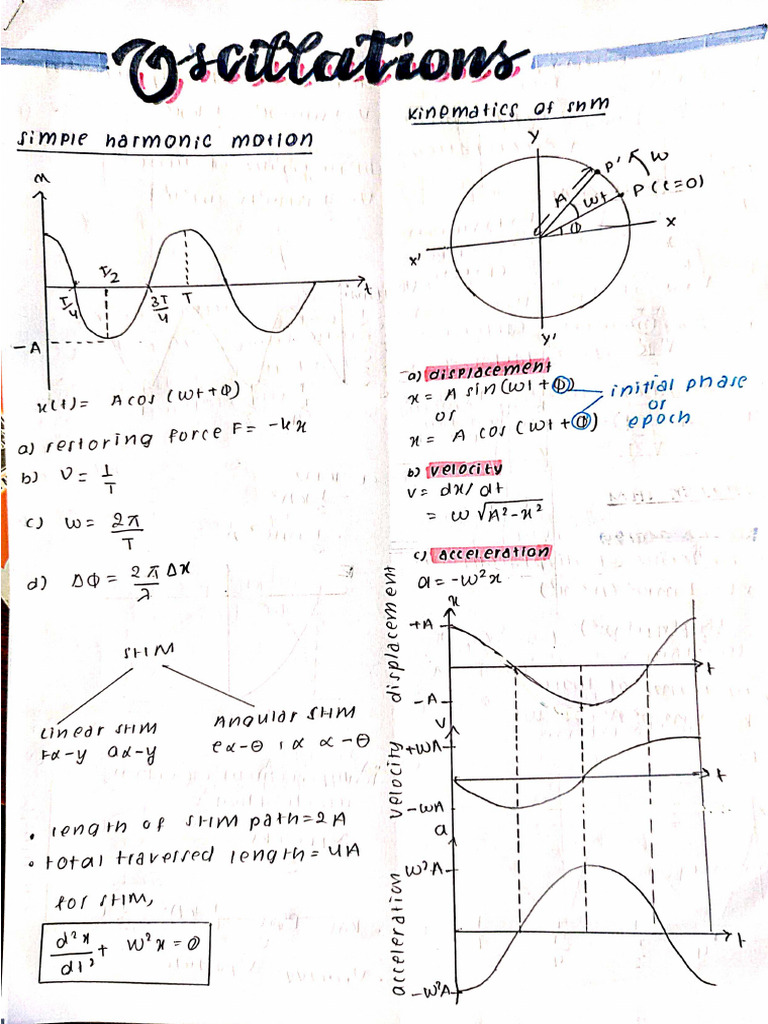 Oscillations
simple harmonic motion
x
T/4
T/2
3T/4
T
t
-A
x(t) = A cos (wt + Φ)
a) restoring force F = -kx
b) ν = 1/T
c) w = 2π/T
d) ΔΦ = 2π/λ Δx
SHM
Linear SHM
Fα-y aα-y
Angular SHM
• length of SHM path = 2A
• total traversed length = 4A
for SHM,
d²x/dt² + w²x = 0
kinematics of shm
Y
P'
w
P (t=0)
A
wt
Φ
O
X
X'
Y'
a) displacement
x = A sin (wt + Φ)
or
x = A cos (wt + Φ)
initial phase
or
epoch
b) velocity
v = dx/dt
= w √A²-x²
c) acceleration
a = -w²x
displacement
x
+A
t
-A
velocity
v
+wA
t
-wA
acceleration
a
w²A
t
-w²A